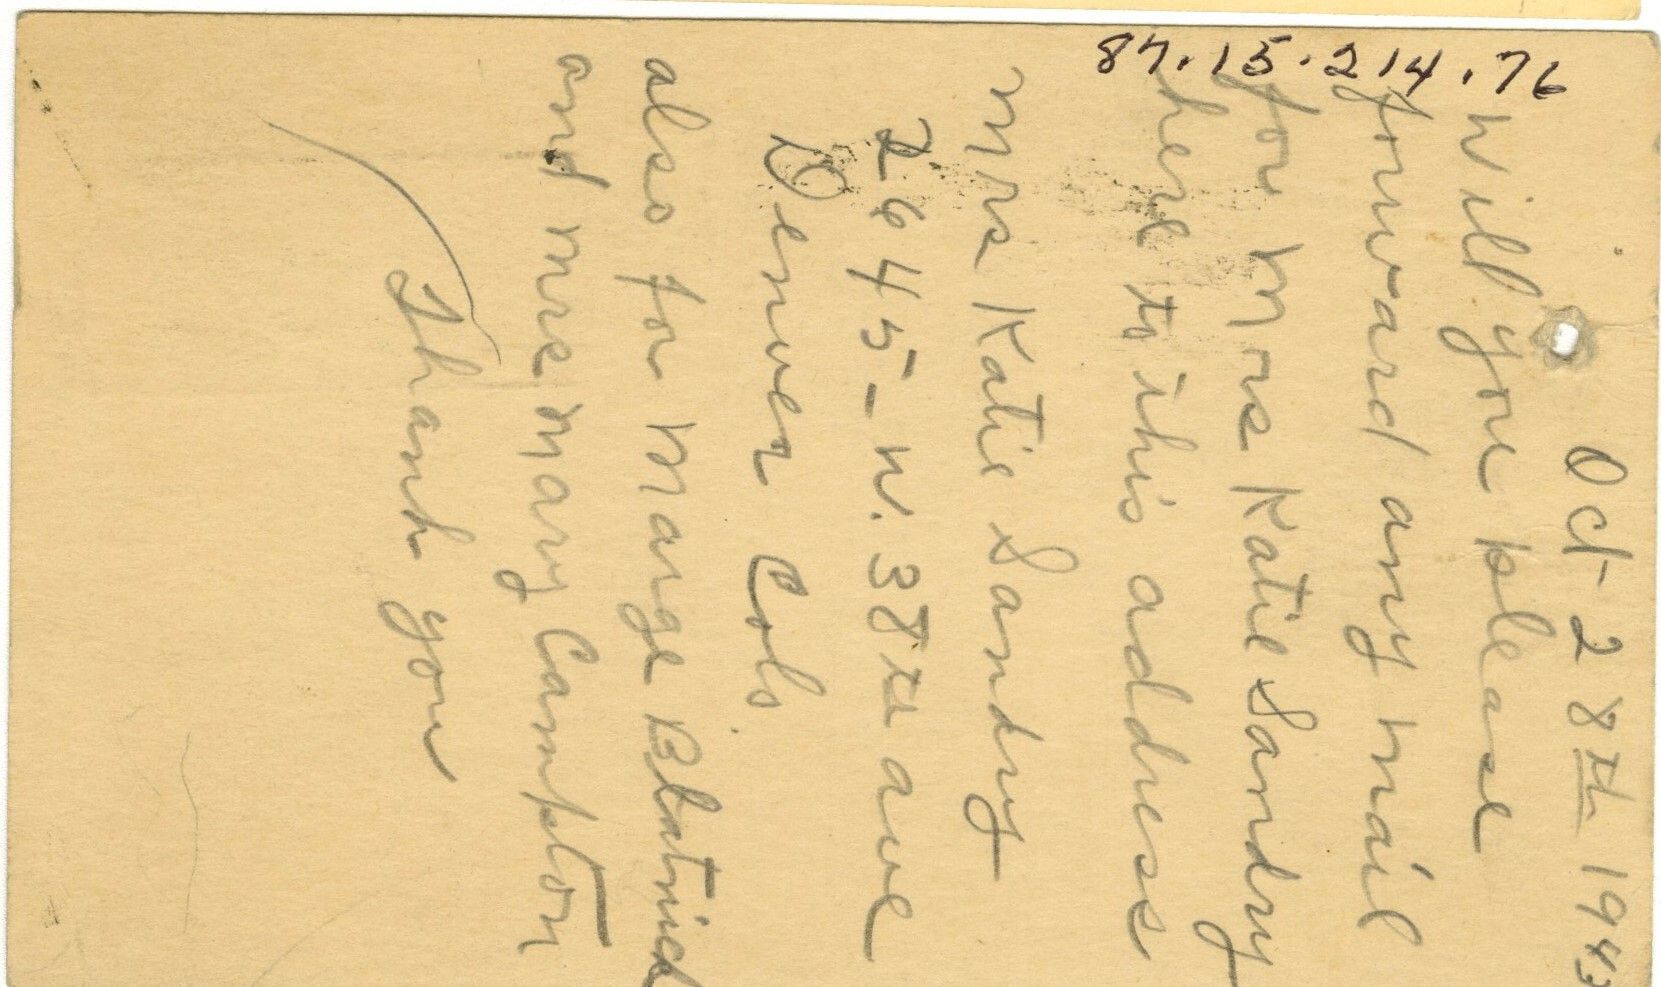 87.15.214.76
Oct 28th 1943
Will you please
forward any mail
for Mrs Katie Sandry
here to this address
Mrs Katie Sandry
2645-W. 38th ave
Denver Colo.
also for Marge Blatnick
and Mrs Mary Campton
Thank you